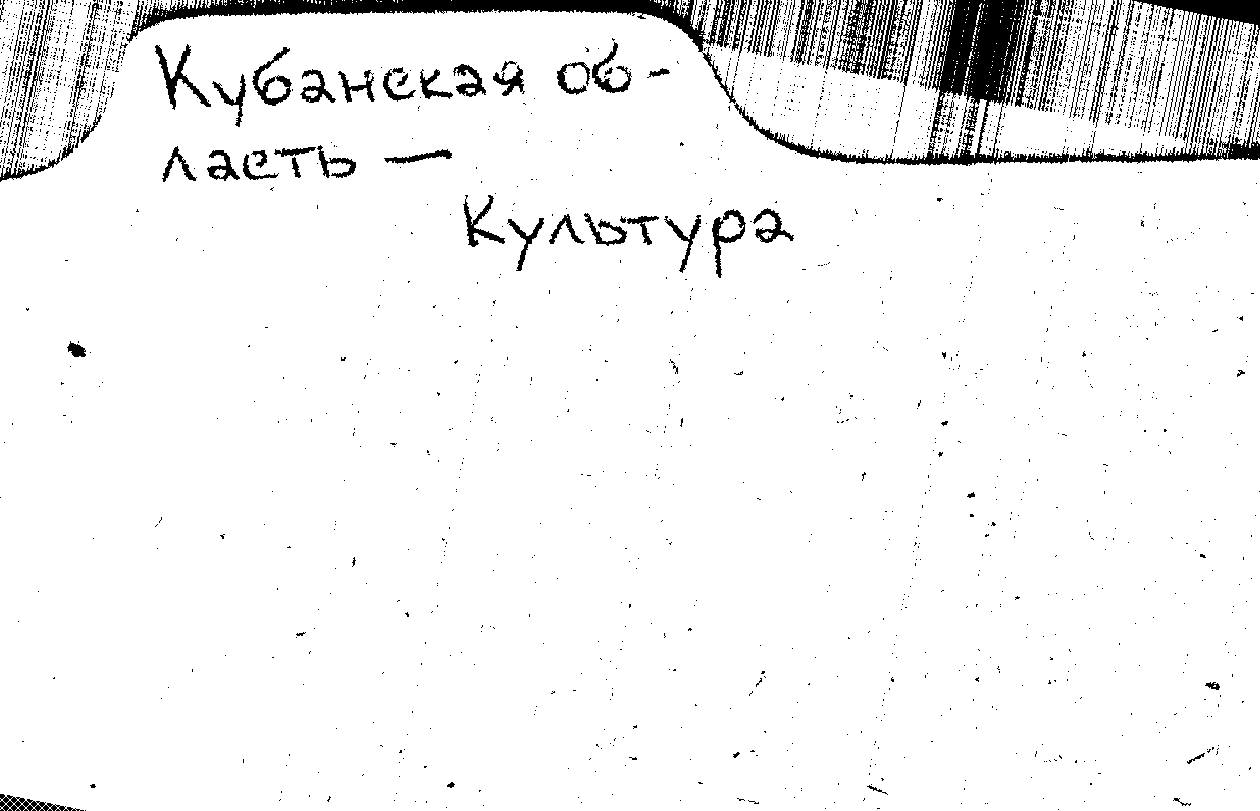 Кубанская об-
ласть —
Культура